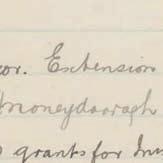 or. Extension
moneydarragh
grants for Inu